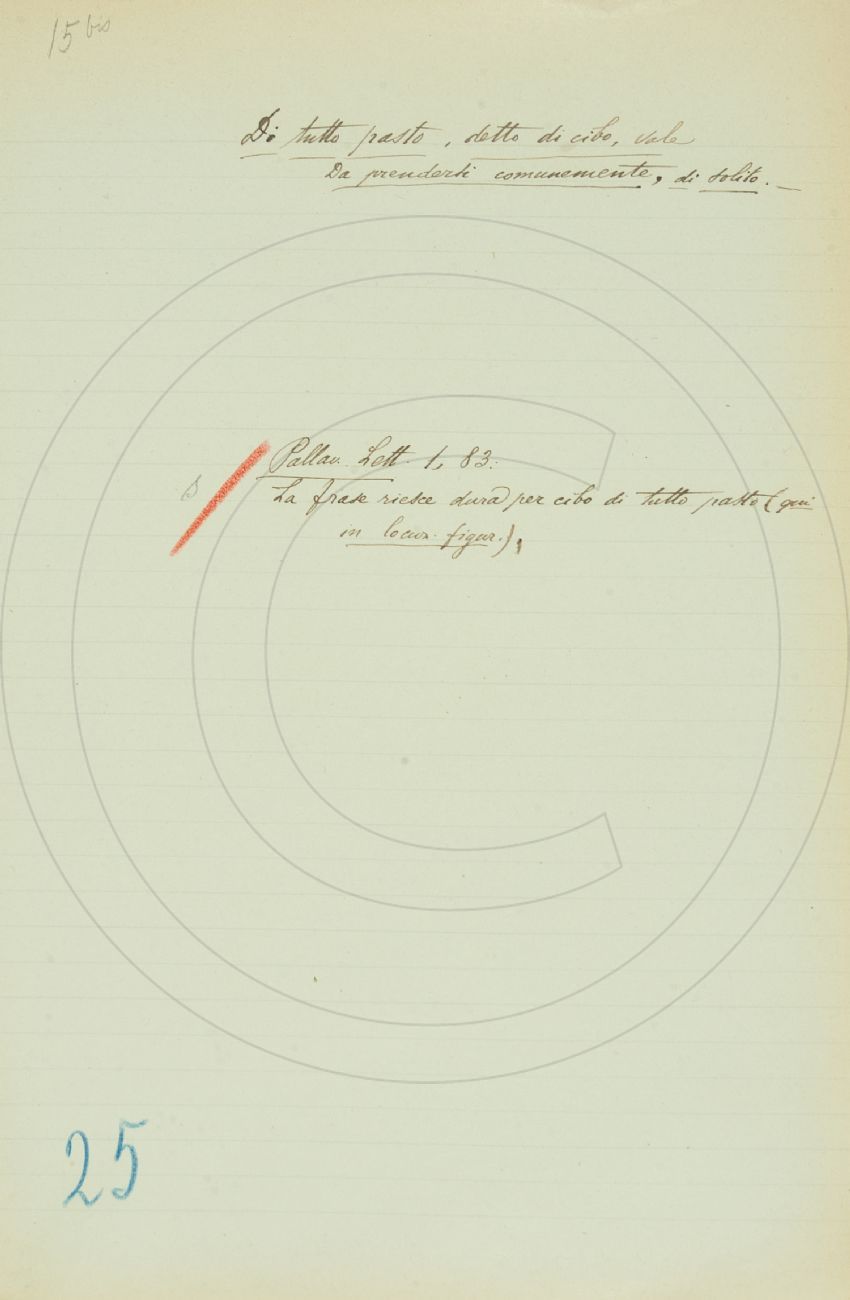 15 bis
Di tutto pasto, detto di cibo, vale
Da prendersi comunemente, di solito. _
Pallav. Lett. 1, 83.
s
La frase riesce dura per cibo di tutto pasto (qui
in locuz. figur.),
25